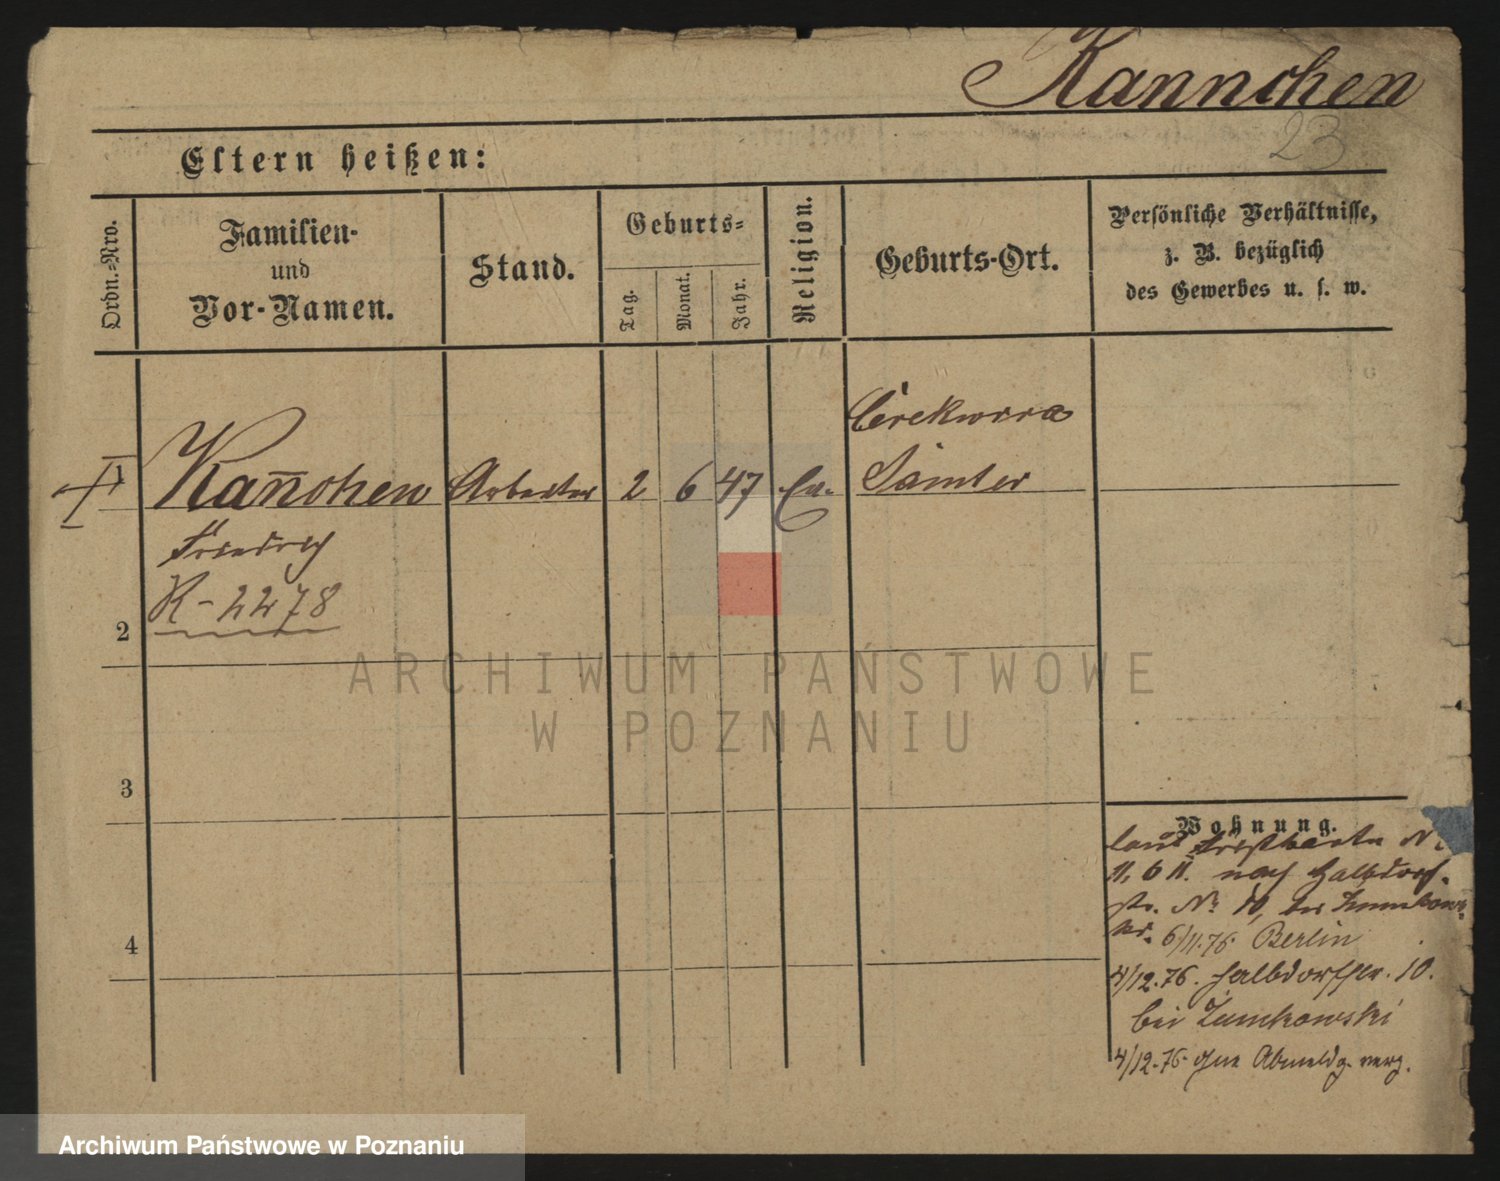 Kannchen
23
Eltern heißen:
Ordn.-Nro.
Familien-
und
Vor-Namen.
Stand.
Geburts-
Tag.
Monat.
Jahr.
Religion.
Geburts-Ort.
Persönliche Verhältnisse,
z. B. bezüglich
des Gewerbes u. s. w.
1
Kan̄chen
Arbeiter
2
6
47
Ev.
Cerekwica
Samter
Friedrich
K-2278
2
3
4
Wohnung.
laut
11. 6 II. nach Halbdorf-
str. No 10, bei
6/11.76. Berlin
4/12.76. Halbdorfstr. 10.
bei Zumkowski
4/12.76 ohne Abmeldg. verz.
ARCHIWUM PAŃSTWOWE
W POZNANIU
Archiwum Państwowe w Poznaniu